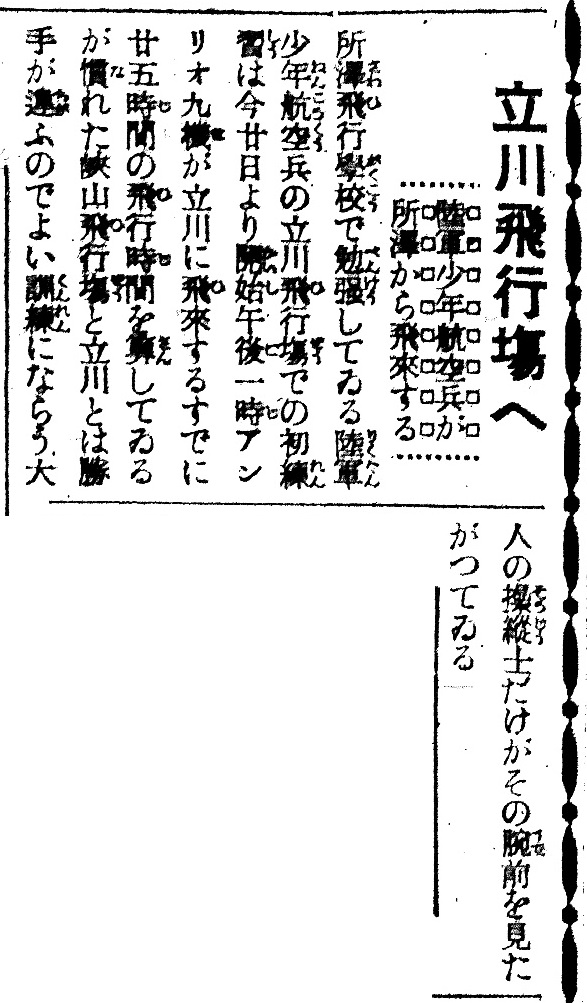 立川飛行場へ
陸軍少年航空兵が
所澤から飛來する
所澤飛行學校で勉强してゐる陸軍
少年航空兵の立川飛行場での初練
習は今廿日より開始午後一時アン
リオ九機が立川に飛來するすでに
廿五時間の飛行時間を算してゐる
が慣れた狹山飛行場と立川とは勝
手が違ふのでよい訓練にならう大
人の操縱士たけがその腕前を見た
がつてゐる